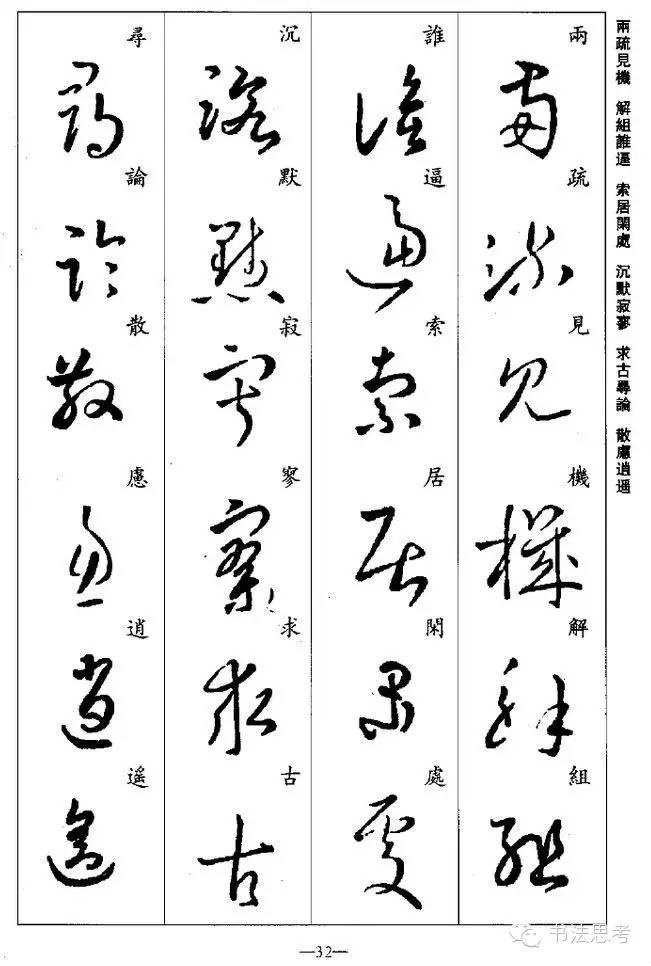 兩疏見機 解組誰逼 索居閑處 沉默寂寥 求古尋論 散慮逍遥
兩疏見機解組
誰逼索居閑處
沉默寂寥求古
尋論散慮逍遥
—32—
书法思考